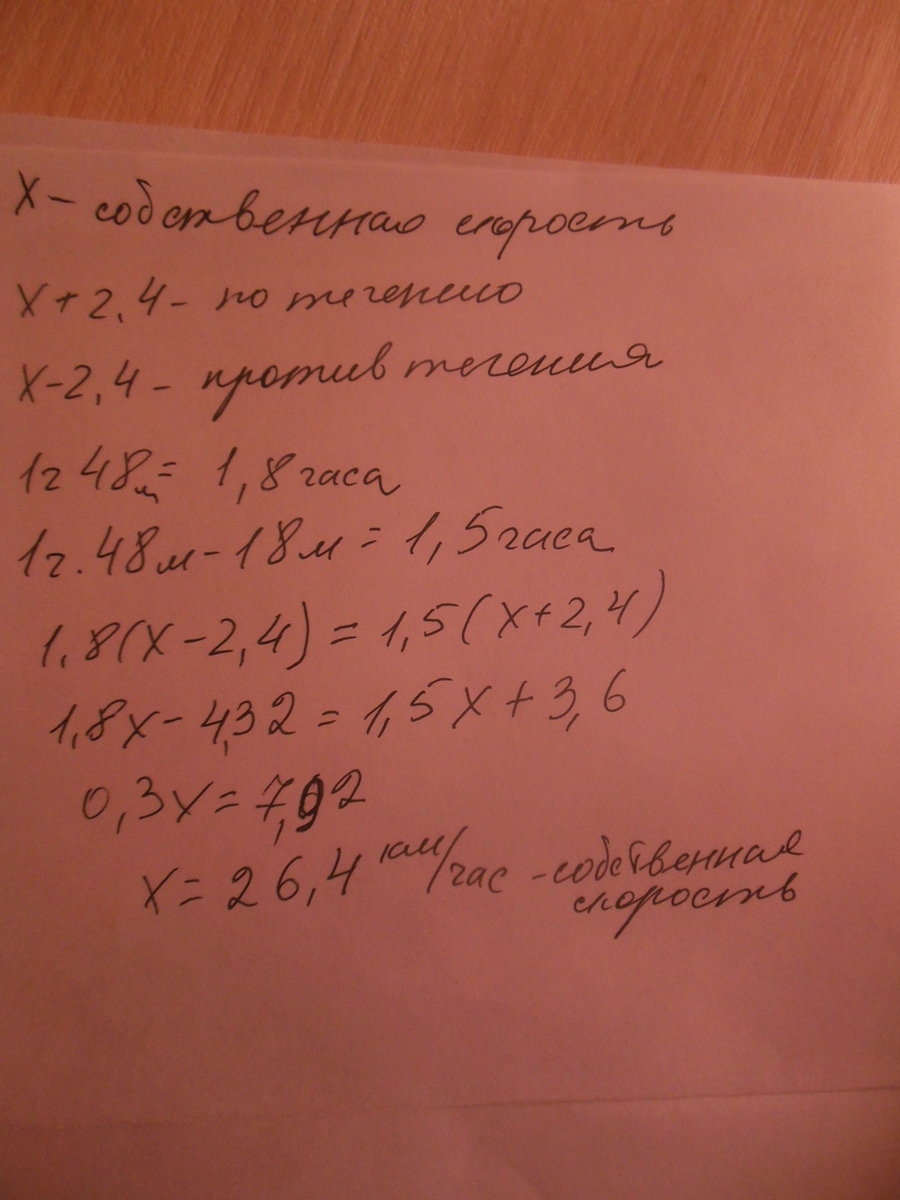 X – собственная скорость
X + 2,4 – по течению
X – 2,4 – против течения
1ч 48м = 1,8 часа
1ч. 48м – 18м = 1,5 часа
1,8(X – 2,4) = 1,5(X + 2,4)
1,8X – 4,32 = 1,5X + 3,6
0,3X = 7,92
X = 26,4 км/час – собственная
скорость